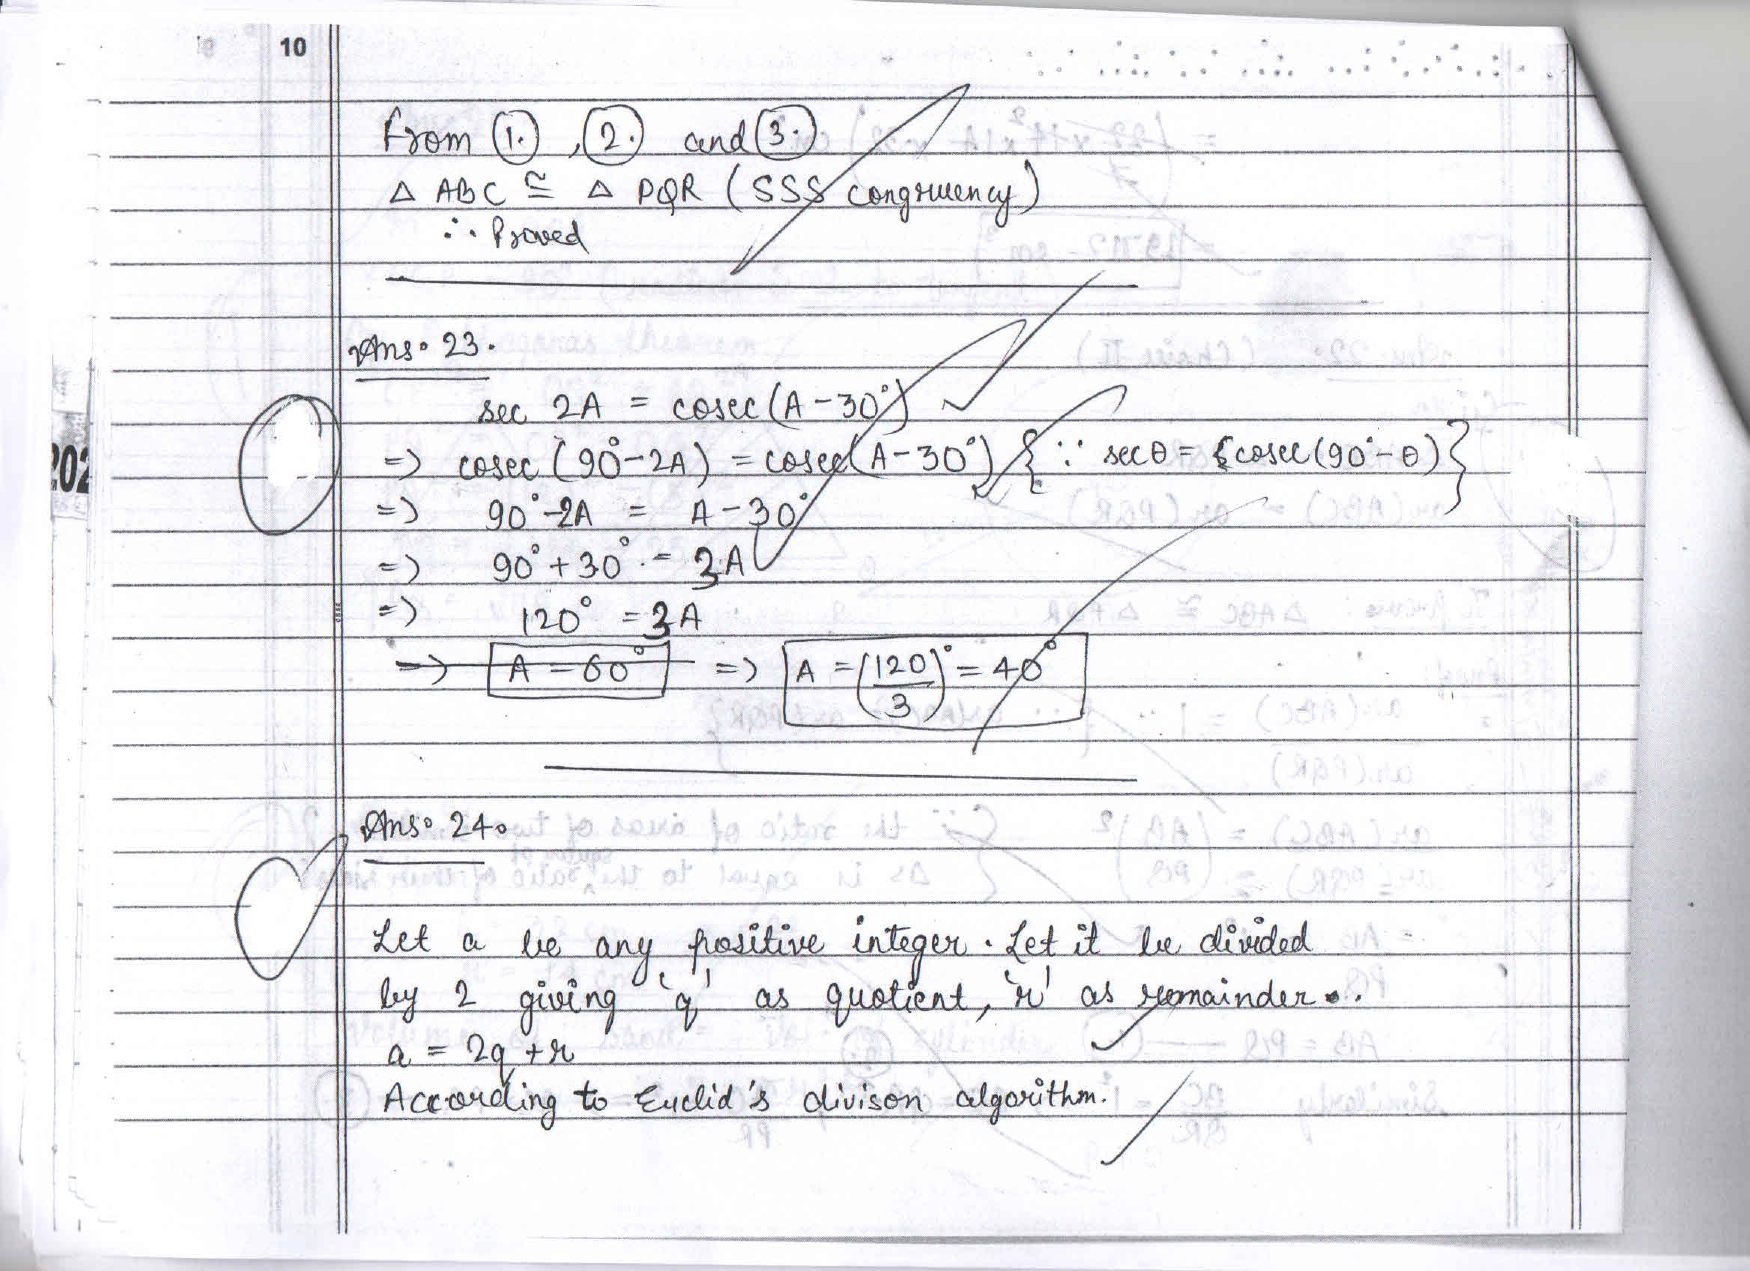 10
From 1. , 2. and 3.
△ ABC ≅ △ PQR (SSS congruency)
∴ Proved
Ans. 23.
sec 2A = cosec (A - 30°)
=> cosec (90° - 2A) = cosec (A - 30°) { ∵ sec θ = cosec (90° - θ) }
=> 90° - 2A = A - 30°
=> 90° + 30° = 3A
=> 120° = 3A
=> A = 60° => A = (120/3)° = 40°
202
Ans. 24.
Let a be any positive integer. Let it be divided
by 2 giving 'q' as quotient, 'r' as remainder.
a = 2q + r
According to Euclid's divison algorithm.